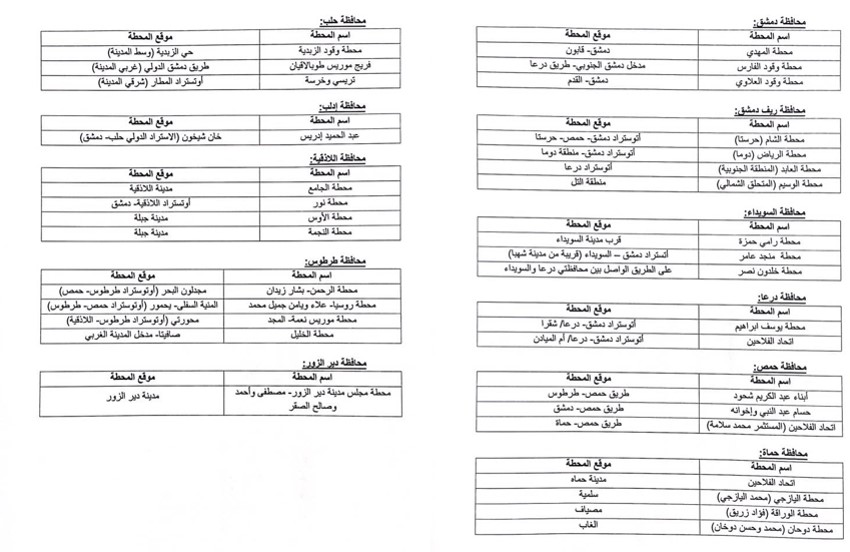 محافظة دمشق:
اسم المحطة موقع المحطة
محطة المهدي دمشق- قابون
محطة وقود الفارس مدخل دمشق الجنوبي- طريق درعا
محطة وقود العلاوي دمشق- القدم
محافظة ريف دمشق:
اسم المحطة موقع المحطة
محطة الشام (حرستا) أتوستراد دمشق- حمص- حرستا
محطة الرياض (دوما) أتوستراد دمشق- منطقة دوما
محطة العابد (المنطقة الجنوبية) أتوستراد درعا
محطة الوسيم (المتحلق الشمالي) منطقة التل
محافظة السويداء:
اسم المحطة موقع المحطة
محطة رامي حمزة قرب مدينة السويداء
محطة منجد عامر أتستراد دمشق – السويداء (قريبة من مدينة شهبا)
محطة خلدون نصر على الطريق الواصل بين محافظتي درعا والسويداء
محافظة درعا:
اسم المحطة موقع المحطة
محطة يوسف ابراهيم أتوستراد دمشق- درعا/ شقرا
اتحاد الفلاحين أتوستراد دمشق- درعا/ أم الميادن
محافظة حمص:
اسم المحطة موقع المحطة
أبناء عبد الكريم شحود طريق حمص- طرطوس
حسام عبد النبي وإخوانه طريق حمص- دمشق
اتحاد الفلاحين (المستثمر محمد سلامة) طريق حمص- حماة
محافظة حماة:
اسم المحطة موقع المحطة
اتحاد الفلاحين مدينة حماه
محطة اليازجي (محمد اليازجي) سلمية
محطة الوراقة (فؤاد زريق) مصياف
محطة دوحان (محمد وحسن دوخان) الغاب
محافظة حلب:
اسم المحطة موقع المحطة
محطة وقود الزبدية حي الزبدية (وسط المدينة)
فريج موريس طوبالاقيان طريق دمشق الدولي (غربي المدينة)
تريسي وخرسة أوتستراد المطار (شرقي المدينة)
محافظة إدلب:
اسم المحطة موقع المحطة
عبد الحميد إدريس خان شيخون (الاستراد الدولي حلب- دمشق)
محافظة اللاذقية:
اسم المحطة موقع المحطة
محطة الجامع مدينة اللاذقية
محطة نور أوتستراد اللاذقية- دمشق
محطة الأوس مدينة جبلة
محطة النجمة مدينة جبلة
محافظة طرطوس:
اسم المحطة موقع المحطة
محطة الرحمن- بشار زيدان مجدلون البحر (أوتوستراد طرطوس- حمص)
محطة روسيا- علاء ويامن جميل محمد المنية السفلى- يحمور (أوتوستراد حمص- طرطوس)
محطة موريس نعمة- المجد محورتي (أوتوستراد طرطوس- اللاذقية)
محطة الخليل صافيتا- مدخل المدينة الغربي
محافظة دير الزور:
اسم المحطة موقع المحطة
محطة مجلس مدينة دير الزور- مصطفى وأحمد مدينة دير الزور
وصالح الصقر